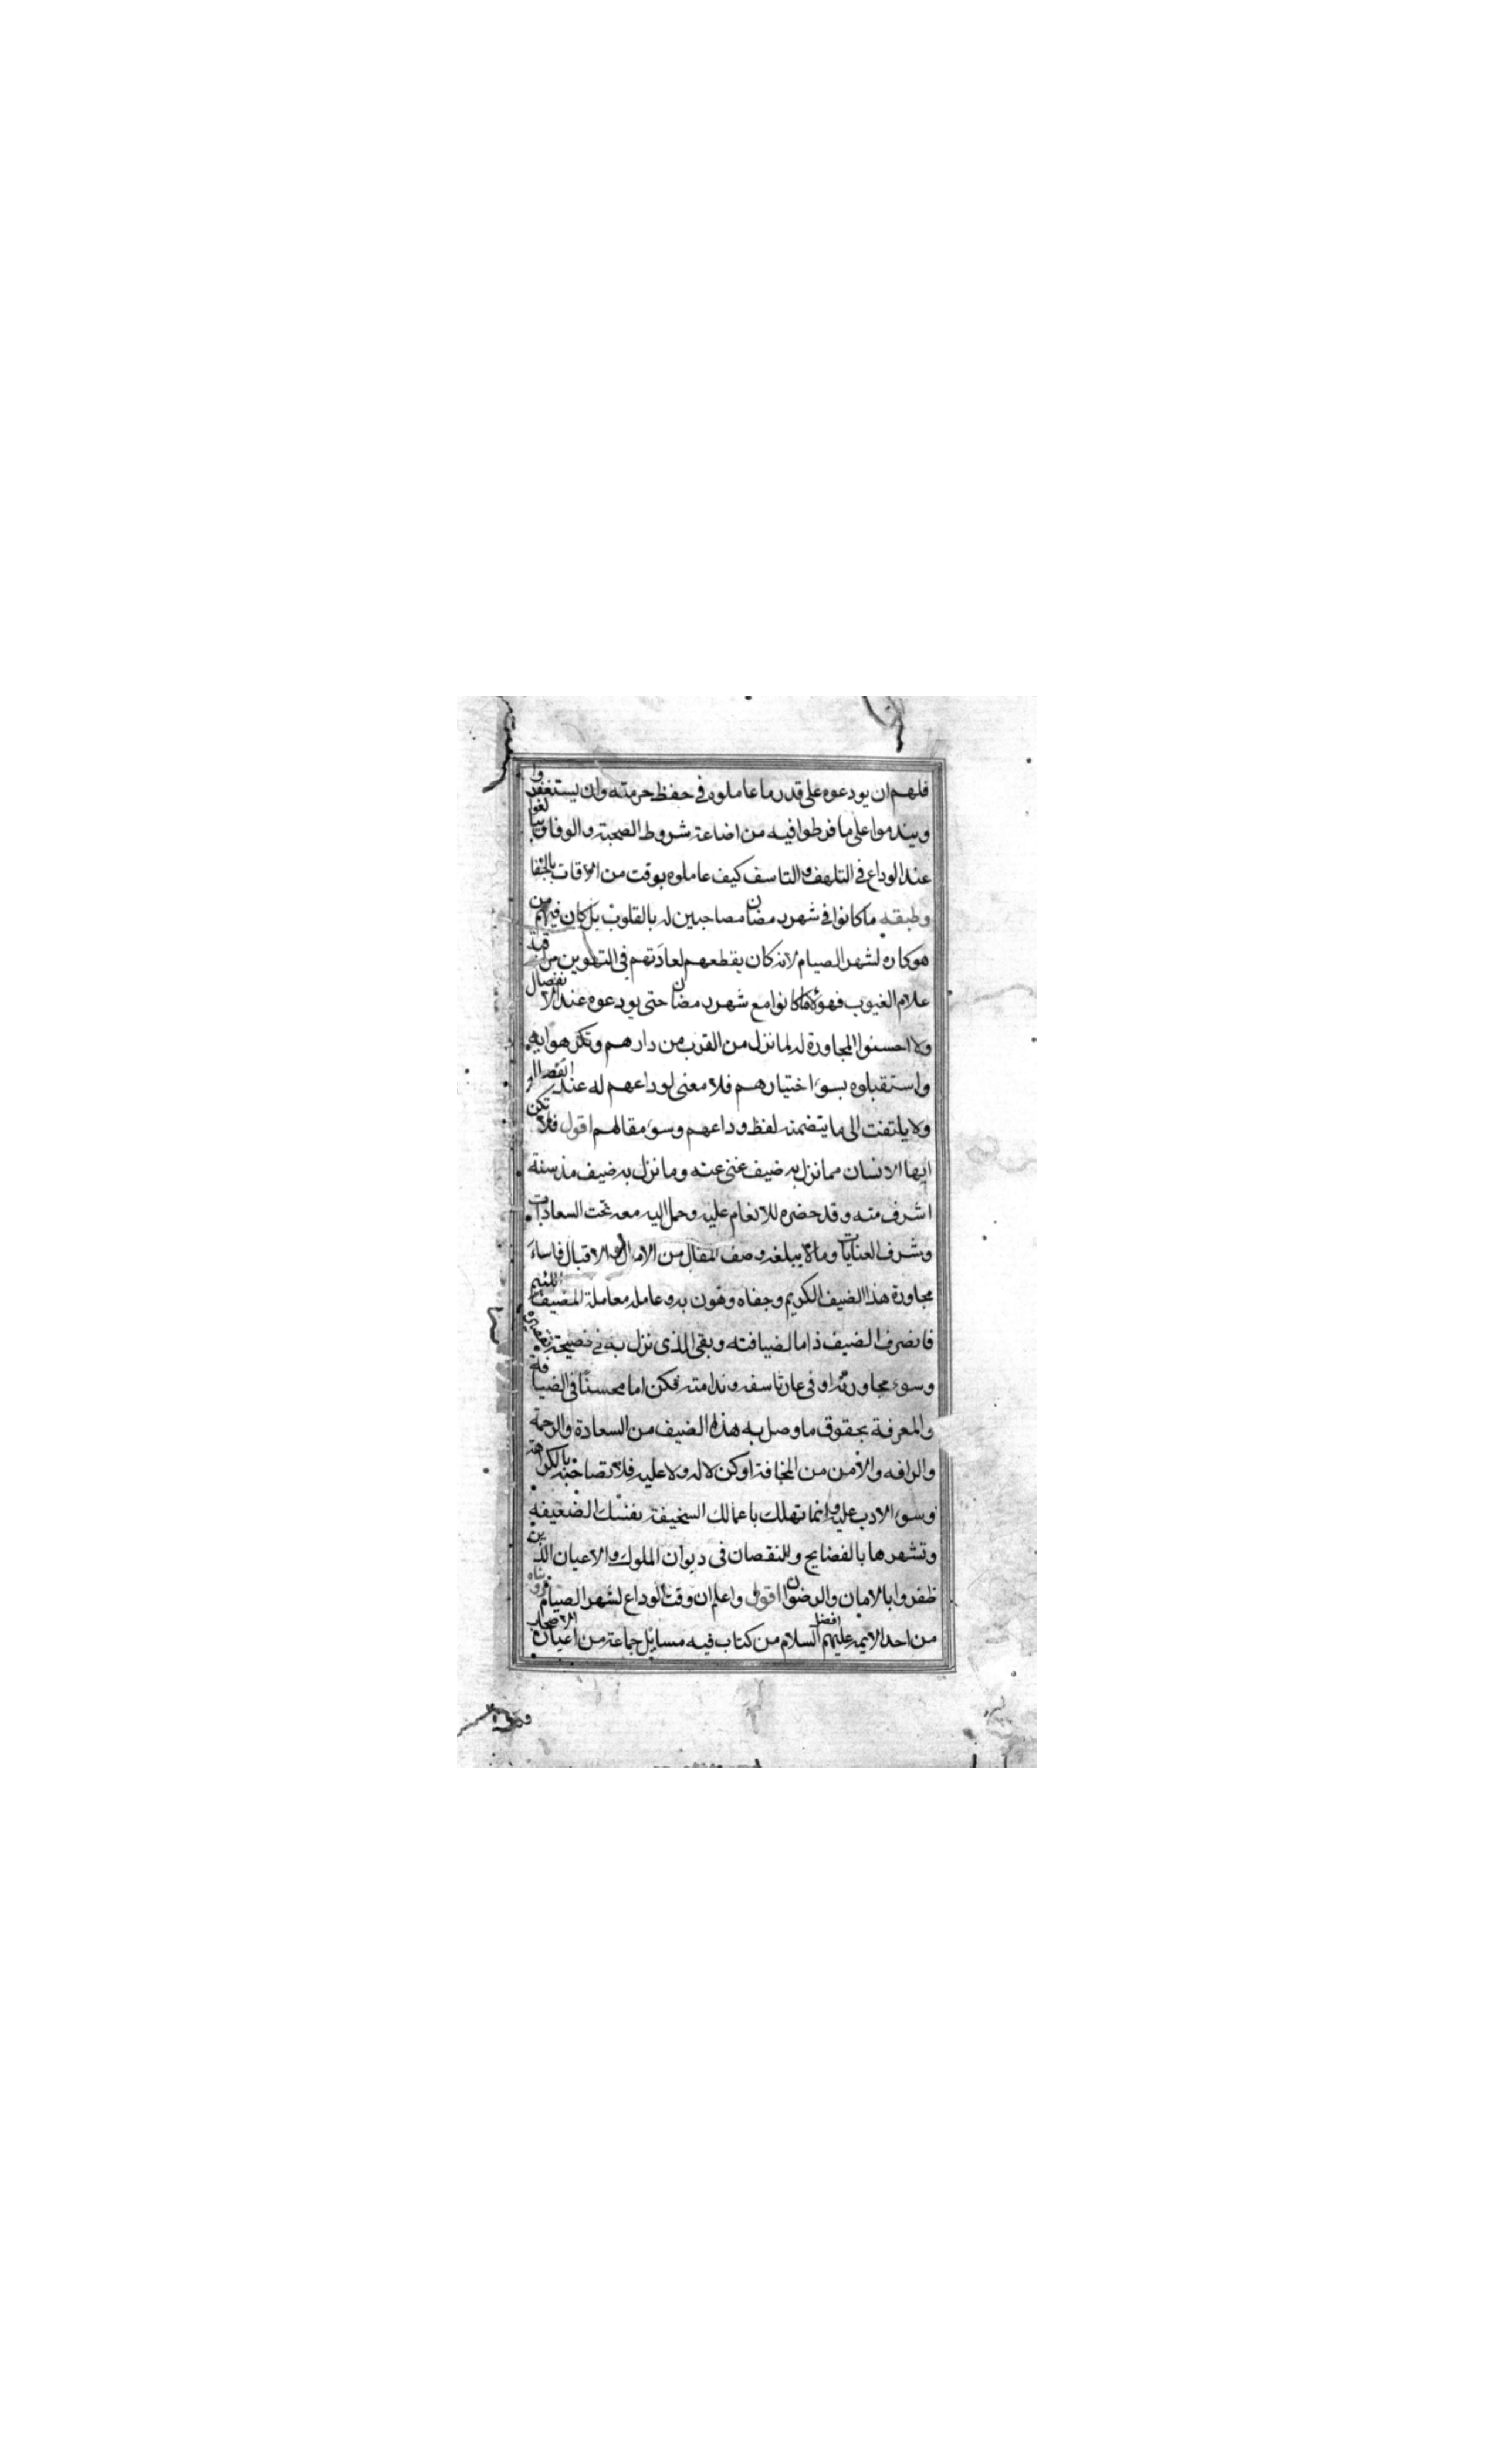 فلهم ان يودعوه على قدر ما عاملوه في حفظ حرمته وان يستغفروا
ويندموا على ما فرطوا فيه من اضاعة شروط الصحبة والوفا ويبالغوا
عند الوداع في التلهف والتاسف كيف عاملوه بوقت من الاوقات بالجفا
وطبقه ما كانوا في شهر رمضان مصاحبين له بالقلوب بل كان فيهم من
هو كاره لشهر الصيام لانه كان يقطعهم لعادتهم في التهوين مراقبة
علام الغيوب فهولا ما كانوا مع شهر رمضان حتى يودعوه عند الانفصال
ولا احسنوا المجاورة له لما نزل من القرب من دارهم وتكرهوا به
واستقبلوه بسوء اختيارهم فلا معنى لوداعهم له عند انفصاله
ولا يلتفت الى ما يتضمنه لفظ وداعهم وسوء مقالهم اقول فلا تكن
ايها الانسان ممن نزل به ضيف غنى عنه وما نزل به ضيف مذ سنة
اشرف منه وقد حضره للانعام عليه وحمل اليه معه تحت السعادات
وشرف العنايات وما لا يبلغه وصف المقال من الامال والاقبال فاساء
مجاورة هذا الضيف الكريم وجفاه وهون به وعامله معاملة المضيف اللئيم
فانصرف الضيف ذاما لضيافته وبقى الذى نزل به في فضيحة تقصيره
وسوء مجاورته او في عار تاسفه وندامته فكن اما محسنا في الضيافة
والمعرفة بحقوق ما وصل به هذا الضيف من السعادة والرحمة
والرافه والامن من المخافة او كن لا له ولا عليه فلا تصاحبه بالكراهة
وسوء الادب عليه وانما تهلك باعمالك السخيفة نفسك الضعيفه
وتشهرها بالفضايح والنقصان في ديوان الملوك والاعيان الذين
ظفروا بالامان والرضوان اقول واعلم ان وقت الوداع لشهر الصيام رويناه
من احد الايمه عليهم افضل السلام من كتاب فيه مسايل جماعة من اعيان الاصحاب